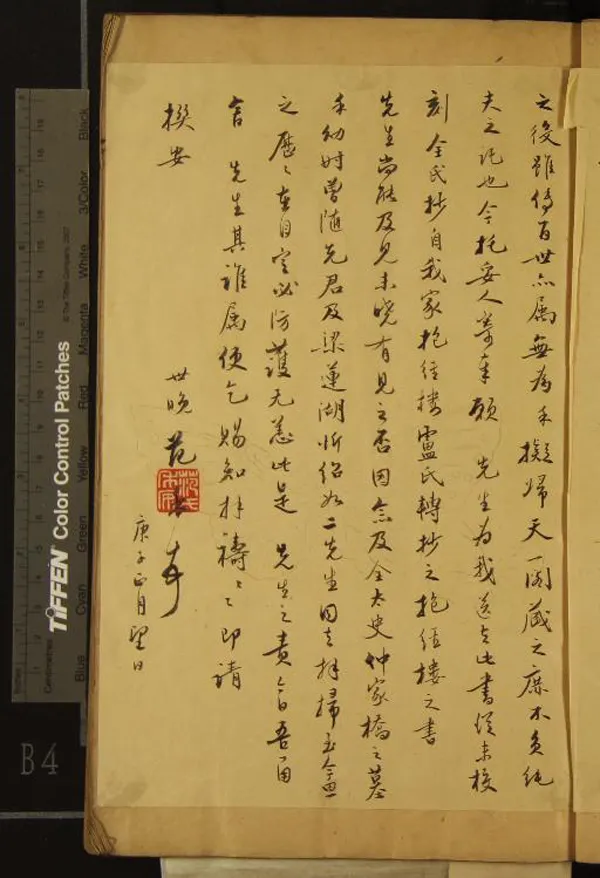 之後雖傳百世亦屬無為擬歸天一閣藏之庶不負純
夫之託也今托妥人寄奉願 先生為我送去此書從未校
刻全氏抄自我家抱經樓盧氏轉抄之抱經樓之書
先生尚能及見未曉有見之否因念及全太史仲家橋之墓
幼時曾隨先君及梁蓮湖忻紹如二先生同去拜掃至今
之歷〻在目定必防護无恙此是 先生之責吾甬
言 先生其誰屬便乞賜知拜禱〻〻即請
撰安
世晚 范
庚子正月望日
TIFFEN® Color Control Patches
© The Tiffen Company, 2007
Inches
Centimetres
Blue Cyan Green Yellow Red Magenta White 3/Color Black
B4